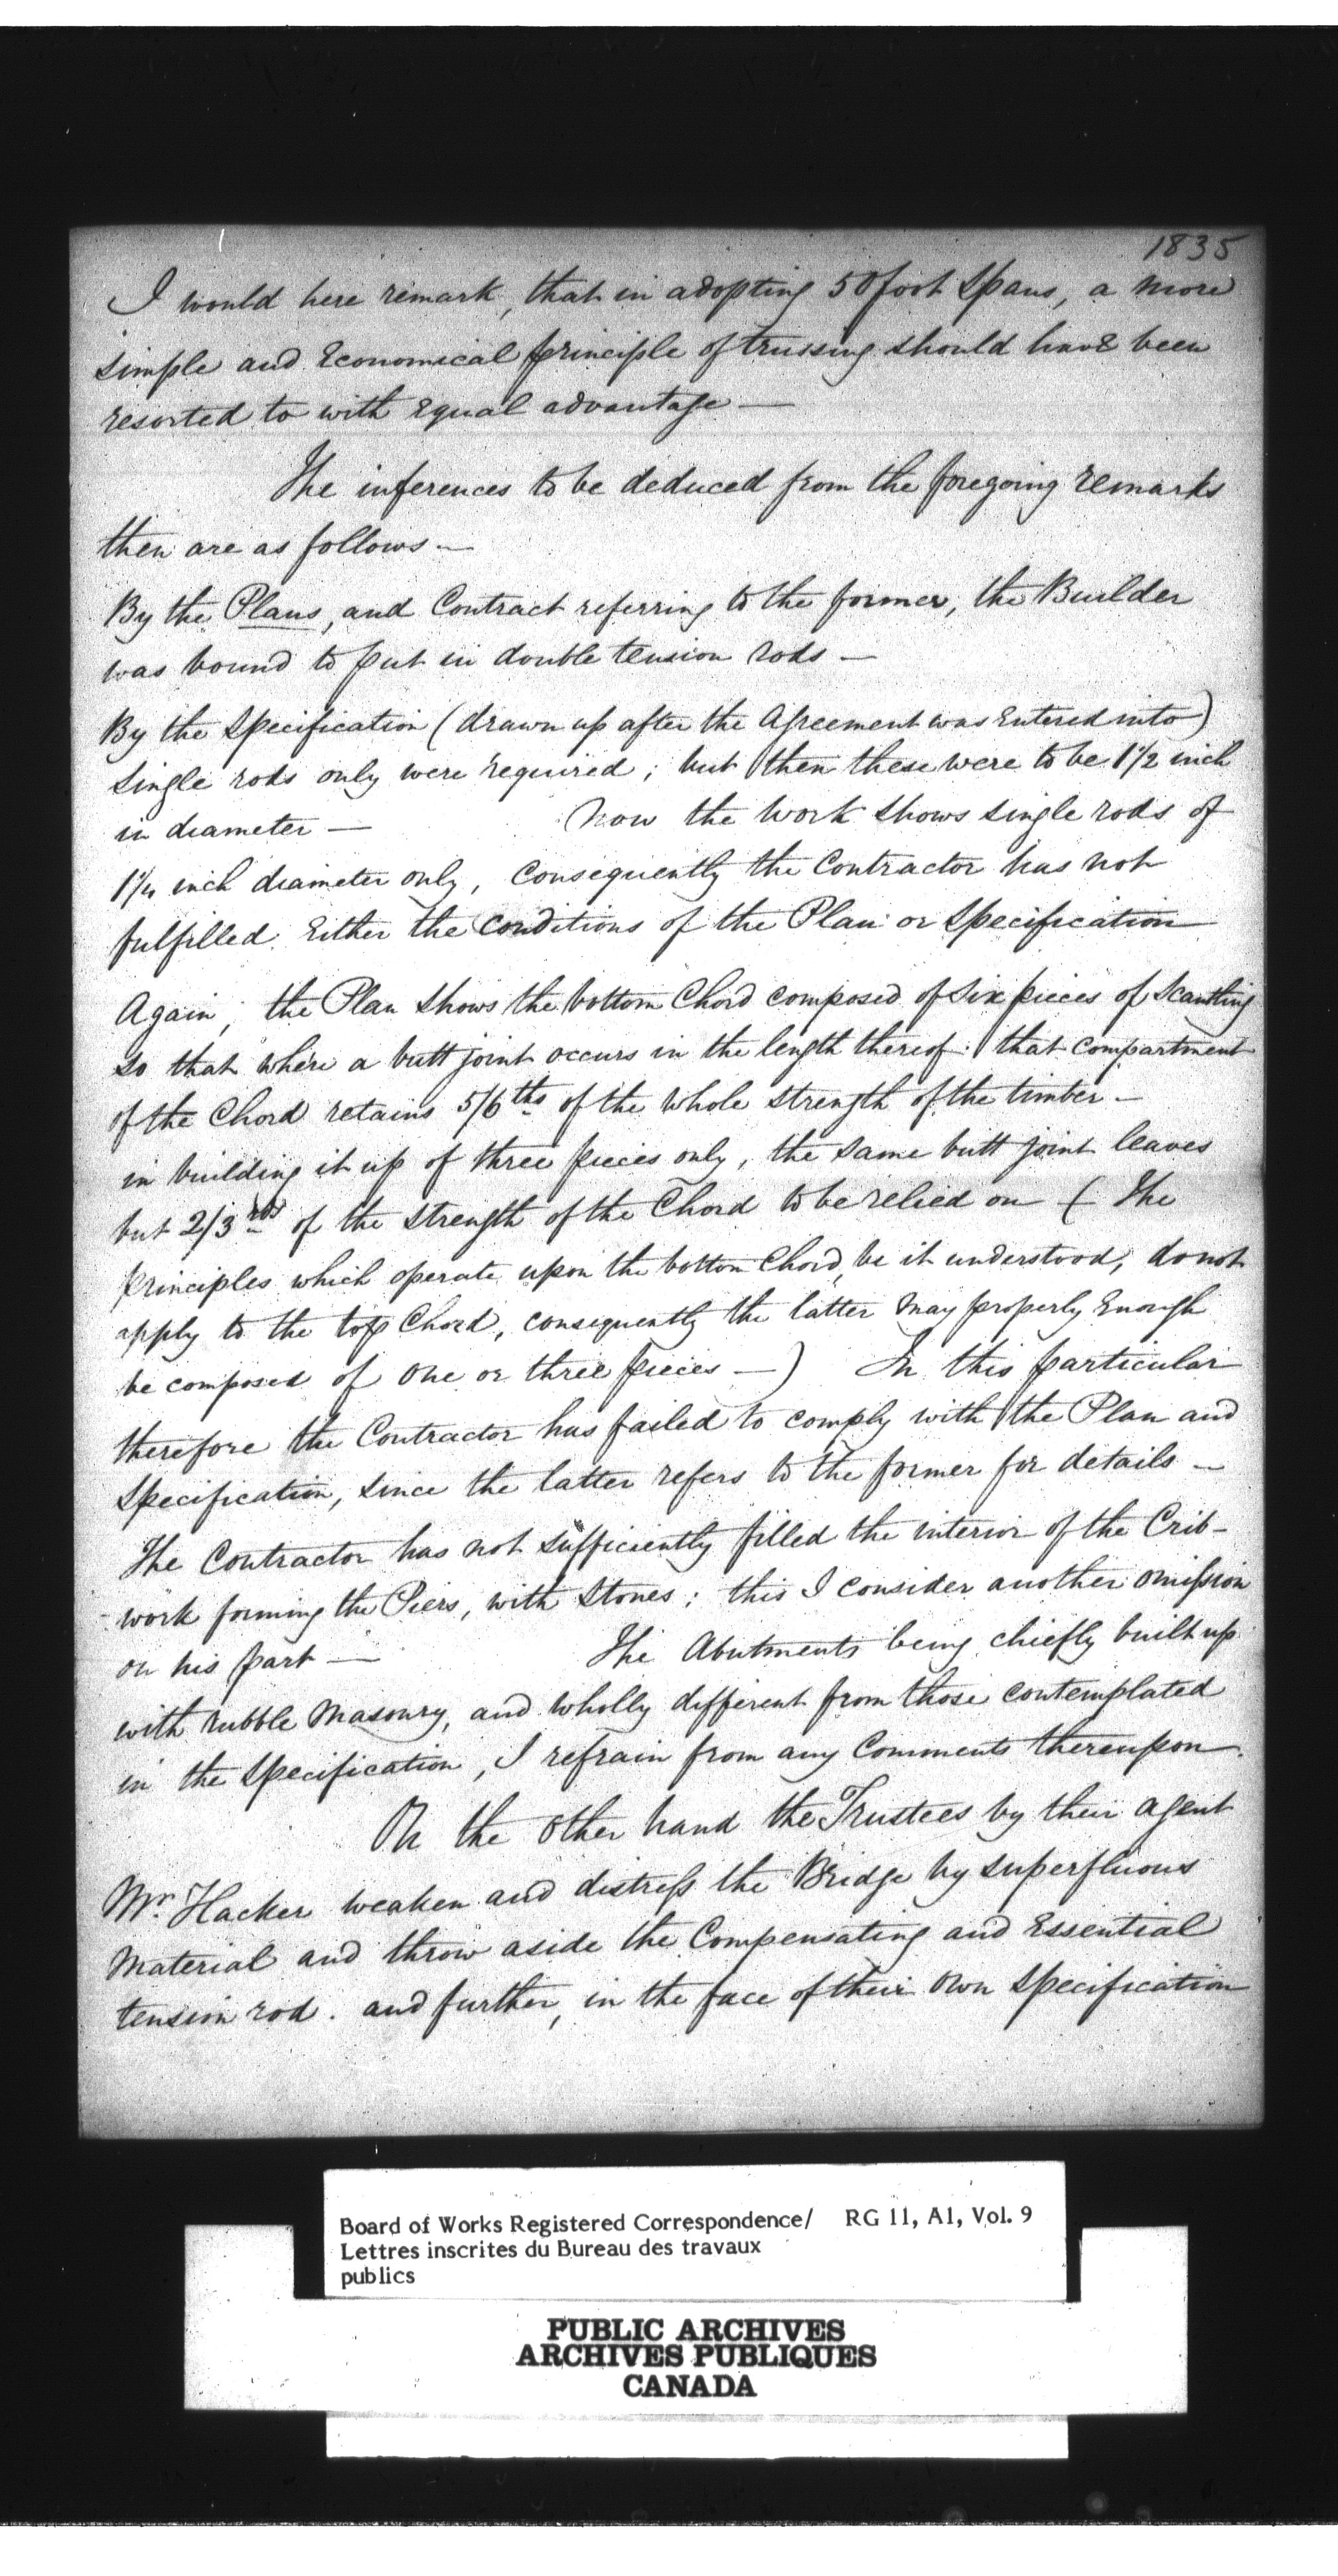 1835
I would here remark, that in adopting 50 foot Spans, a more
simple and Economical principle of trussing should have been
resorted to with Equal advantage —
The inferences to be deduced from the foregoing remarks
then are as follows —
By the Plans, and Contract referring to the former, the Builder
was bound to put in double tension rods —
By the Specification (drawn up after the Agreement was Entered into)
single rods only were required; but then these were to be 1 1/2 inch
in diameter — Now the work shows single rods of
1 1/4 inch diameter only, Consequently the Contractor has not
fulfilled Either the Conditions of the Plan or Specification
Again, the Plan shows the bottom Chord composed of six pieces of Scantling
so that where a butt joint occurs in the length thereof: that compartment
of the Chord retains 5/6ths of the whole strength of the timber —
in building it up of three pieces only, the same butt joint leaves
but 2/3rds of the strength of the Chord to be relied on — (The
principles which operate upon the bottom Chord, be it understood, do not
apply to the top Chord, consequently the latter may properly Enough
be composed of one or three pieces —) In this particular
therefore the Contractor has failed to comply with the Plan and
Specification, since the latter refers to the former for details —
The Contractor has not sufficiently filled the interior of the Crib-
-work forming the Piers, with Stones; this I consider another omission
on his part — The Abutments being chiefly built up
with rubble Masonry, and wholly different from those contemplated
in the Specification, I refrain from any Comments thereupon.
On the other hand the Trustees by their agent
Mr. Hacker weaken and distress the Bridge by superfluous
Material and throw aside the Compensating and Essential
tension rod. and further, in the face of their own Specification
Board of Works Registered Correspondence/ RG 11, A1, Vol. 9
Lettres inscrites du Bureau des travaux
publics
PUBLIC ARCHIVES
ARCHIVES PUBLIQUES
CANADA